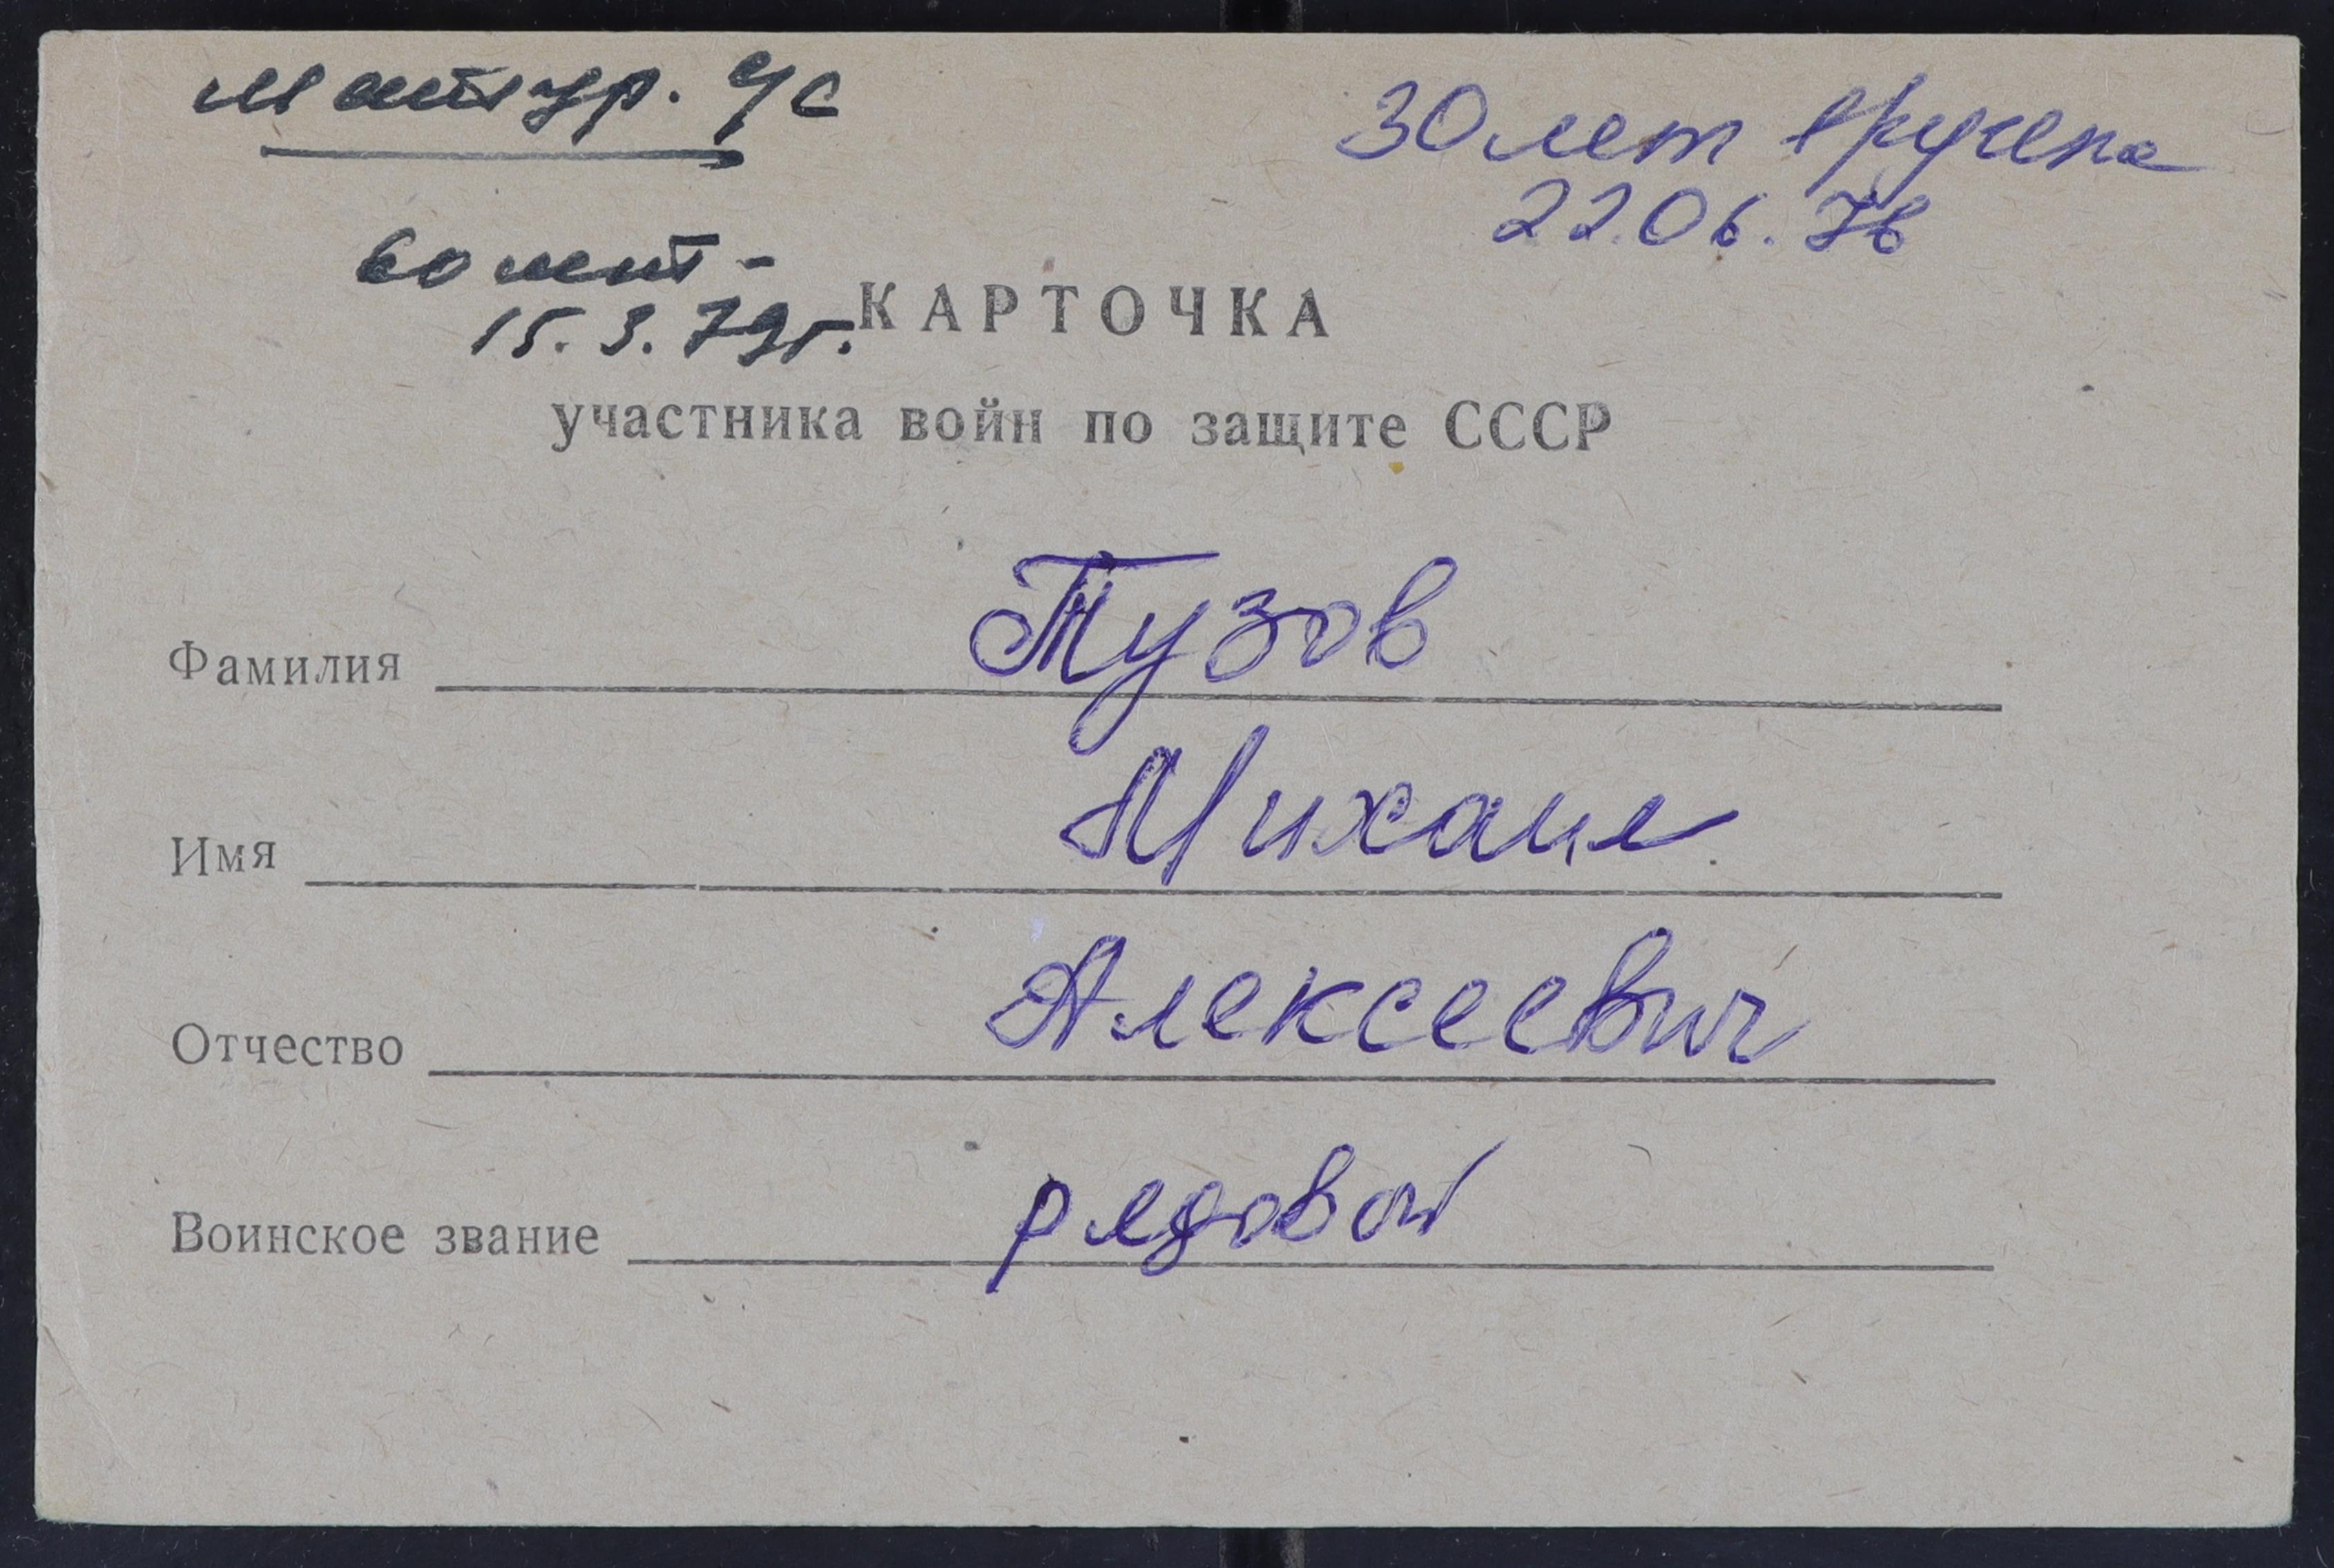 Мантур. с/с
30 лет вручена
22.06.76
60 лет -
15.3.79г.
КАРТОЧКА
участника войн по защите СССР
Фамилия Тузов
Имя Михаил
Отчество Алексеевич
Воинское звание рядовой